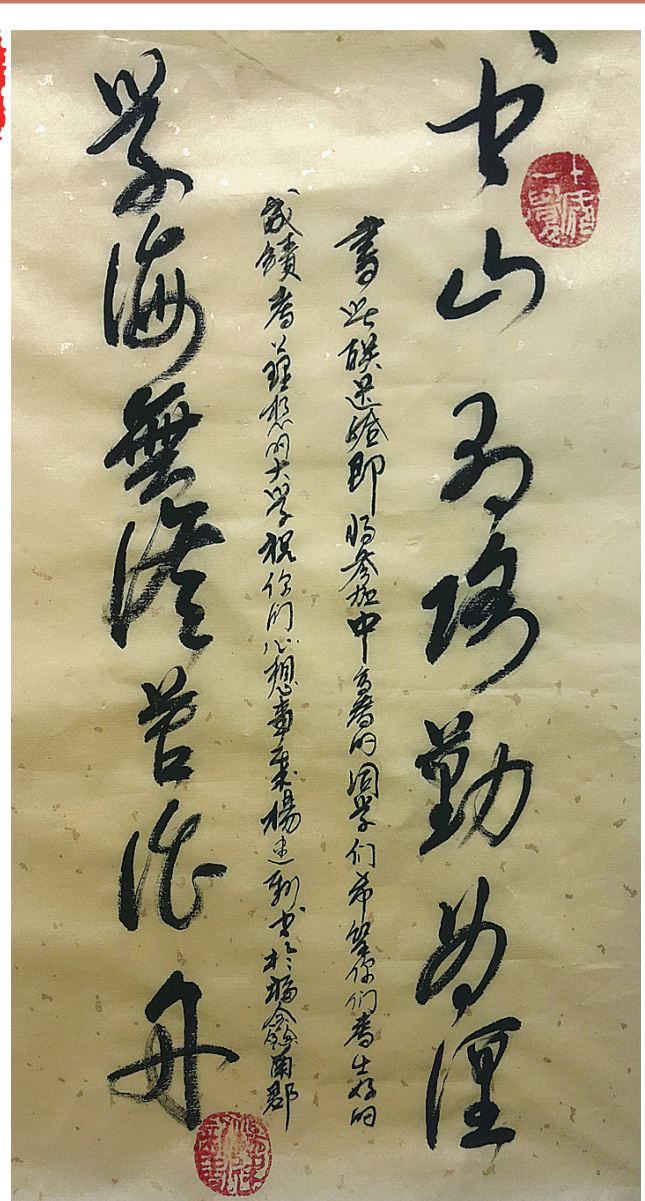 书山有路勤为徑
書此联送给即将参加中高考的同学们希望你们考出好的
成績考上理想的大学祝你们心想事成楊建书於福鑫南郡
学海無涯苦作舟